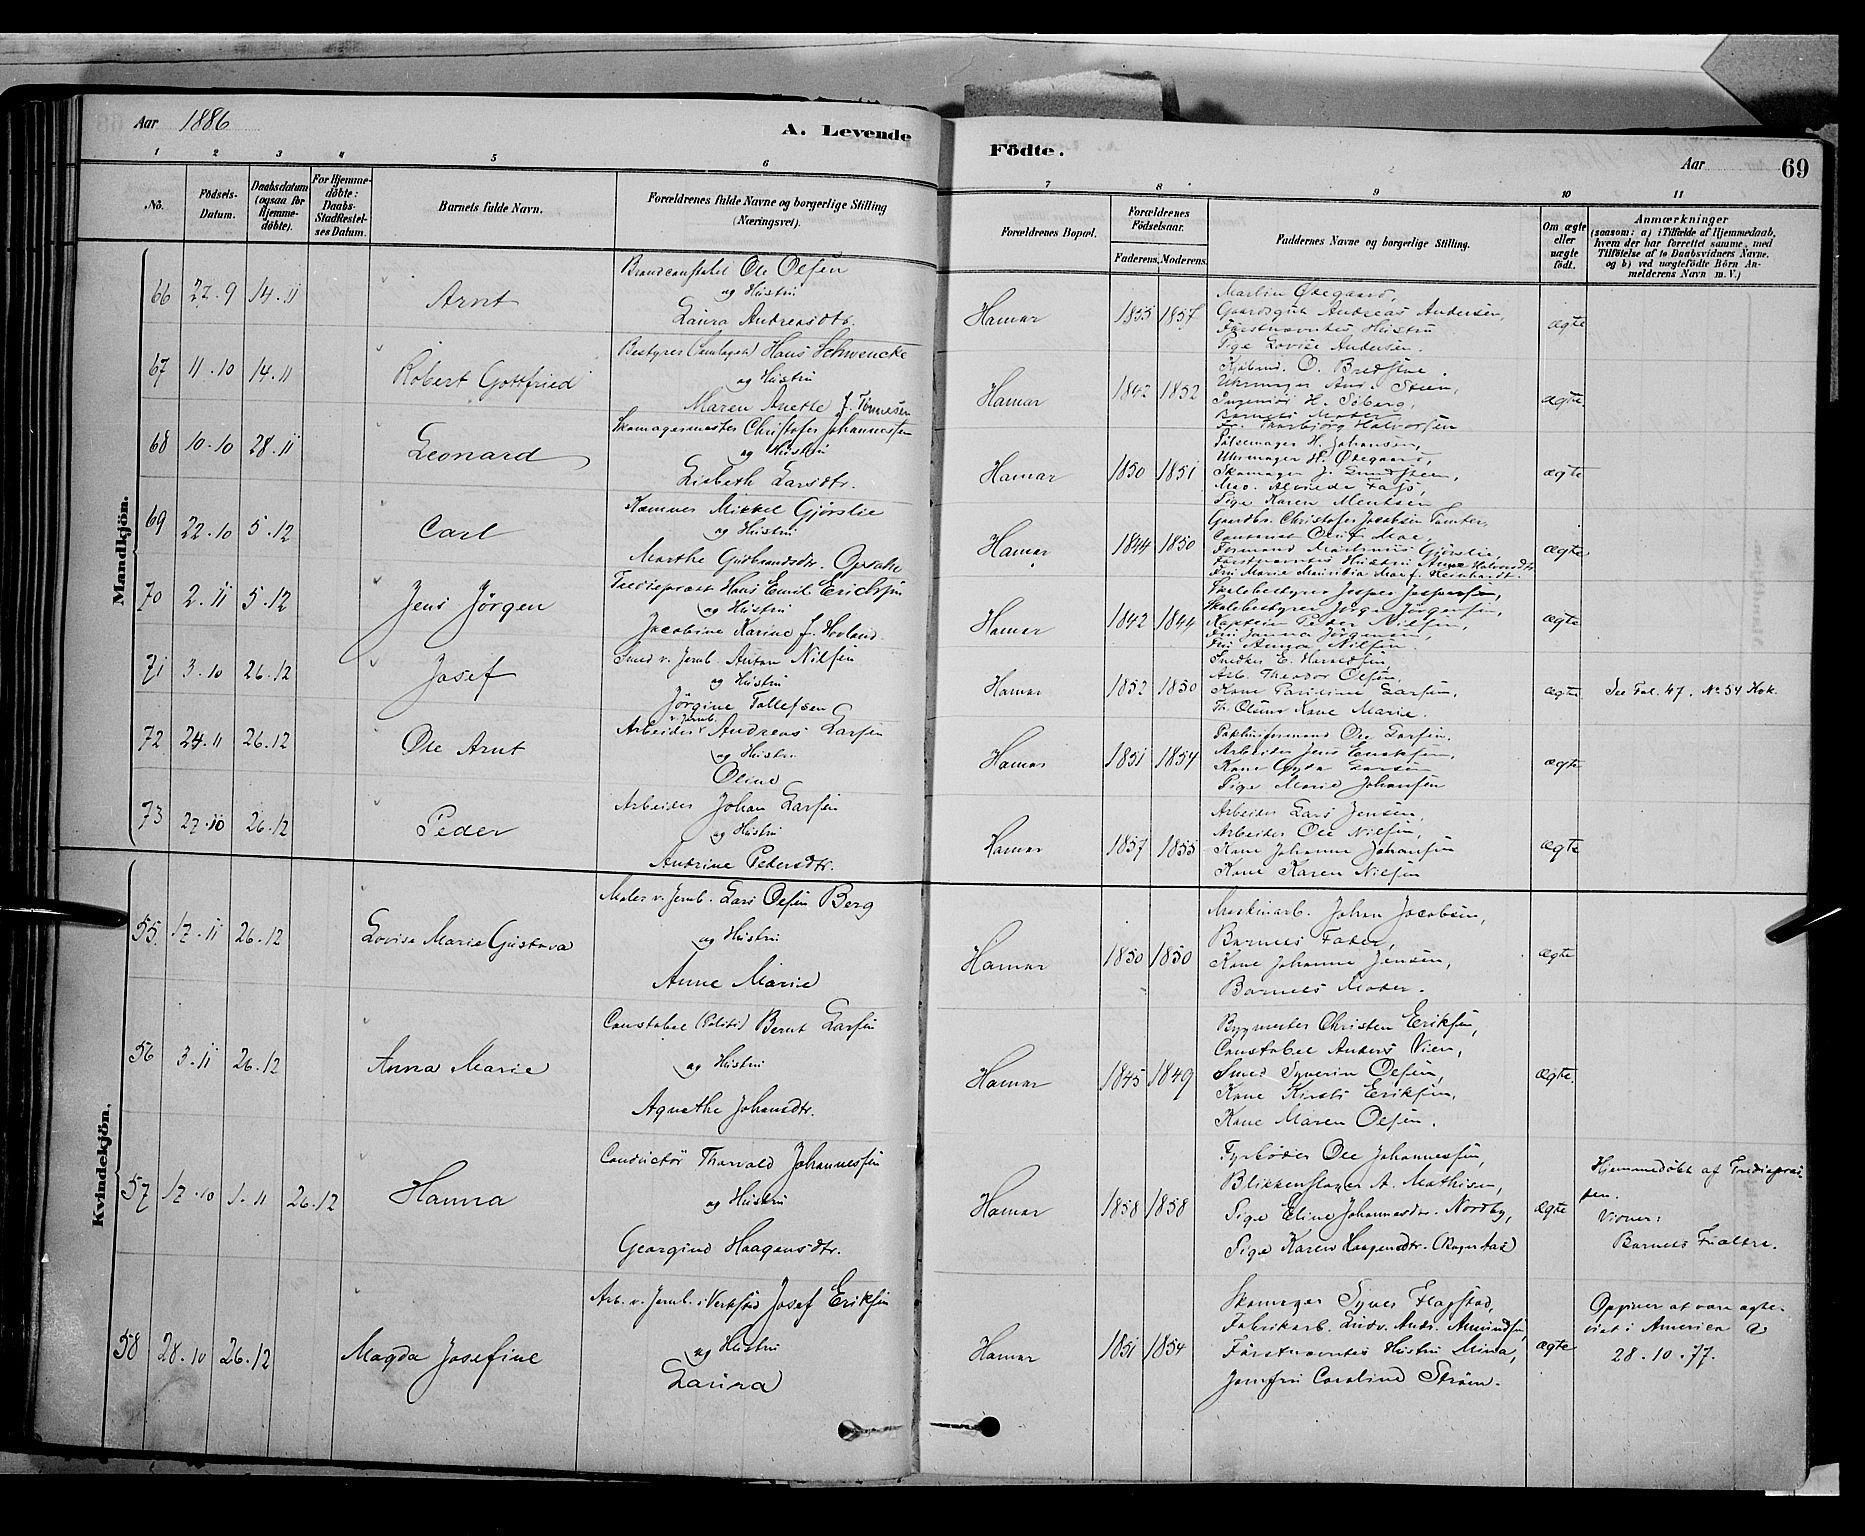 Aar 1886
A. Levende
Födte.
Aar
69
1 2 3 4 5 6 7 8 9 10 11
No.
Födsels-
Datum.
Daabsdatum
(ogsaa for
Hjemme-
döbte).
For Hjemme-
döbte:
Daabs-
Stadfæstel-
ses Datum.
Barnets fulde Navn.
Forældrenes fulde Navne og borgerlige Stilling
(Næringsvei).
Forældrenes Bopæl.
Forældrenes
Födselsaar.
Faderens. Moderens.
Faddernes Navne og borgerlige Stilling.
Om ægte
eller
uægte
födt.
Anmærkninger
(saasom: a) i Tilfælde af Hjemmedaab,
hvem der har forrettet samme, med
Tilföielse af to Daabsvidners Navne.
og b) ved uægtefödte Börn An-
melderens Navn m. V.)
Mandkjön.
66 27.9 14.11 Arnt
Brandconstabel Ole Olsen
og Hustru
Laura Andreasdtr.
Hamar 1855 1857
Martin Ødegaard,
Gaardsgut Andreas Andersen,
Förstnævntes Hustru
Pige Lovise Andersen.
ægte
67 11.10 14.11 Robert Gottfried
Bestyrer (Samlaget) Hans Schwencke
og Hustru
Maren Anette f. Tönnesen
Hamar 1842 1852
Kjøbmd. O. Bredstue.
Uhrmager And. Steen,
Ingeniör H. Söberg,
Barnets Moder
Fr. Thorbjörg Halvorsen
ægte.
68 10.10 28.11 Leonard
Skomagermester Christofer Johannessen
og Hustru
Lisbeth Larsdtr.
Hamar 1850 1851
Pölsemager H. Johansen,
Uhrmager H. Ødegaard,
Skomager J. Lundsten,
Pige Karen Mentsen
ægte
69 22.10 5.12 Carl
Kæmner Mikkel Gjörslie
og Hustru
Marthe Gudbrandsdtr. Opsahl
Hamar 1844 1850
Gaardbr. Christofer Jacobsen Tomter,
Formand Martinus Gjörslie,
Förstnævntes Hustru Anne Halvorsdtr
ægte
70 2.11 5.12 Jens Jörgen
Tredieprest Hans Emil Erichsen
og Hustru
Jacobine Karine f. Hovland.
Hamar 1842 1844
Skolebestyrer Jesper Jespersen,
Skolebestyrer Jörgen Jörgensen,
Kaptein Peder Nilsen,
Fru Janna Jörgensen,
Fru Anna Nilsen.
ægte
71 3.10 26.12 Josef
Smed v. Jernb. Anton Nilsen
og Hustru
Jörgine Tollefsen
Hamar 1852 1850
Snedker E. Haraldsen,
Arb. Theodor Olsen,
Kone Pauline Larsen,
Th. Olsens Kone Marie.
ægte
See Fol. 47. No 54 Kok.
72 24.11 26.12 Ole Arnt
Arbeider v. Jernb. Andreas Larsen
og Hustru
Oline
Hamar 1851 1854
Pakhusformand Ole Larsen.
Arbeider Jens Eriksen,
Kone Gyda Larsen
Pige Marie Johansen
ægte
73 27.10 26.12 Peder
Arbeider Johan Larsen
og Hustru
Andrine Pedersdtr.
Hamar 1857 1855
Arbeider Lars Jensen,
Arbeider Ole Nilsen,
Kone Johanne Johansen
Kone Karen Nilsen
ægte
Kvindekjön.
55. 17.11 26.12 Lovise Marie Gustava
Maler v. Jernb. Lars Olsen Berg
og Hustru
Anne Marie
Hamar 1850 1850
Maskinarb. Johan Jacobsen,
Barnets Fader,
Kone Johanne Jensen,
Barnets Moder.
ægte
56 3.11 26.12 Anna Marie
Constabel (Politi) Bernt Larsen
og Hustru
Agnethe Johansdtr.
Hamar 1845 1849
Bygmester Christen Eriksen,
Constabel Anders Vien,
Smed Syverin Olsen,
Kone Kirsti Eriksen,
Kone Maren Olsen.
ægte.
57 17.10 1.11 26.12 Hanna
Conductör Thorvald Johannessen
og Hustru
Georgine Haagensdtr.
Hamar 1858 1858
Fyrböder Ole Johannessen,
Blikkenslager A. Mathisen,
Pige Eline Johannesdtr. Nordby,
Pige Karen Haagensdtr. Bogestad
ægte
Hjemmedöbt af Trediepræ-
sten.
Vidner:
Barnets Forældre.
58 28.10 26.12 Magda Josefine
Arb. v. Jernb. i Verksted Josef Eriksen
og Hustru
Laura
Hamar 1851 1854
Skomager Syver Flagstad,
Fabrikarb. Ludv. Andr. Amundsen,
Förstnævntes Hustru Mina,
Jomfru Caroline Ström.
ægte
Opgiver at være ægte-
viet i America
28.10.77.